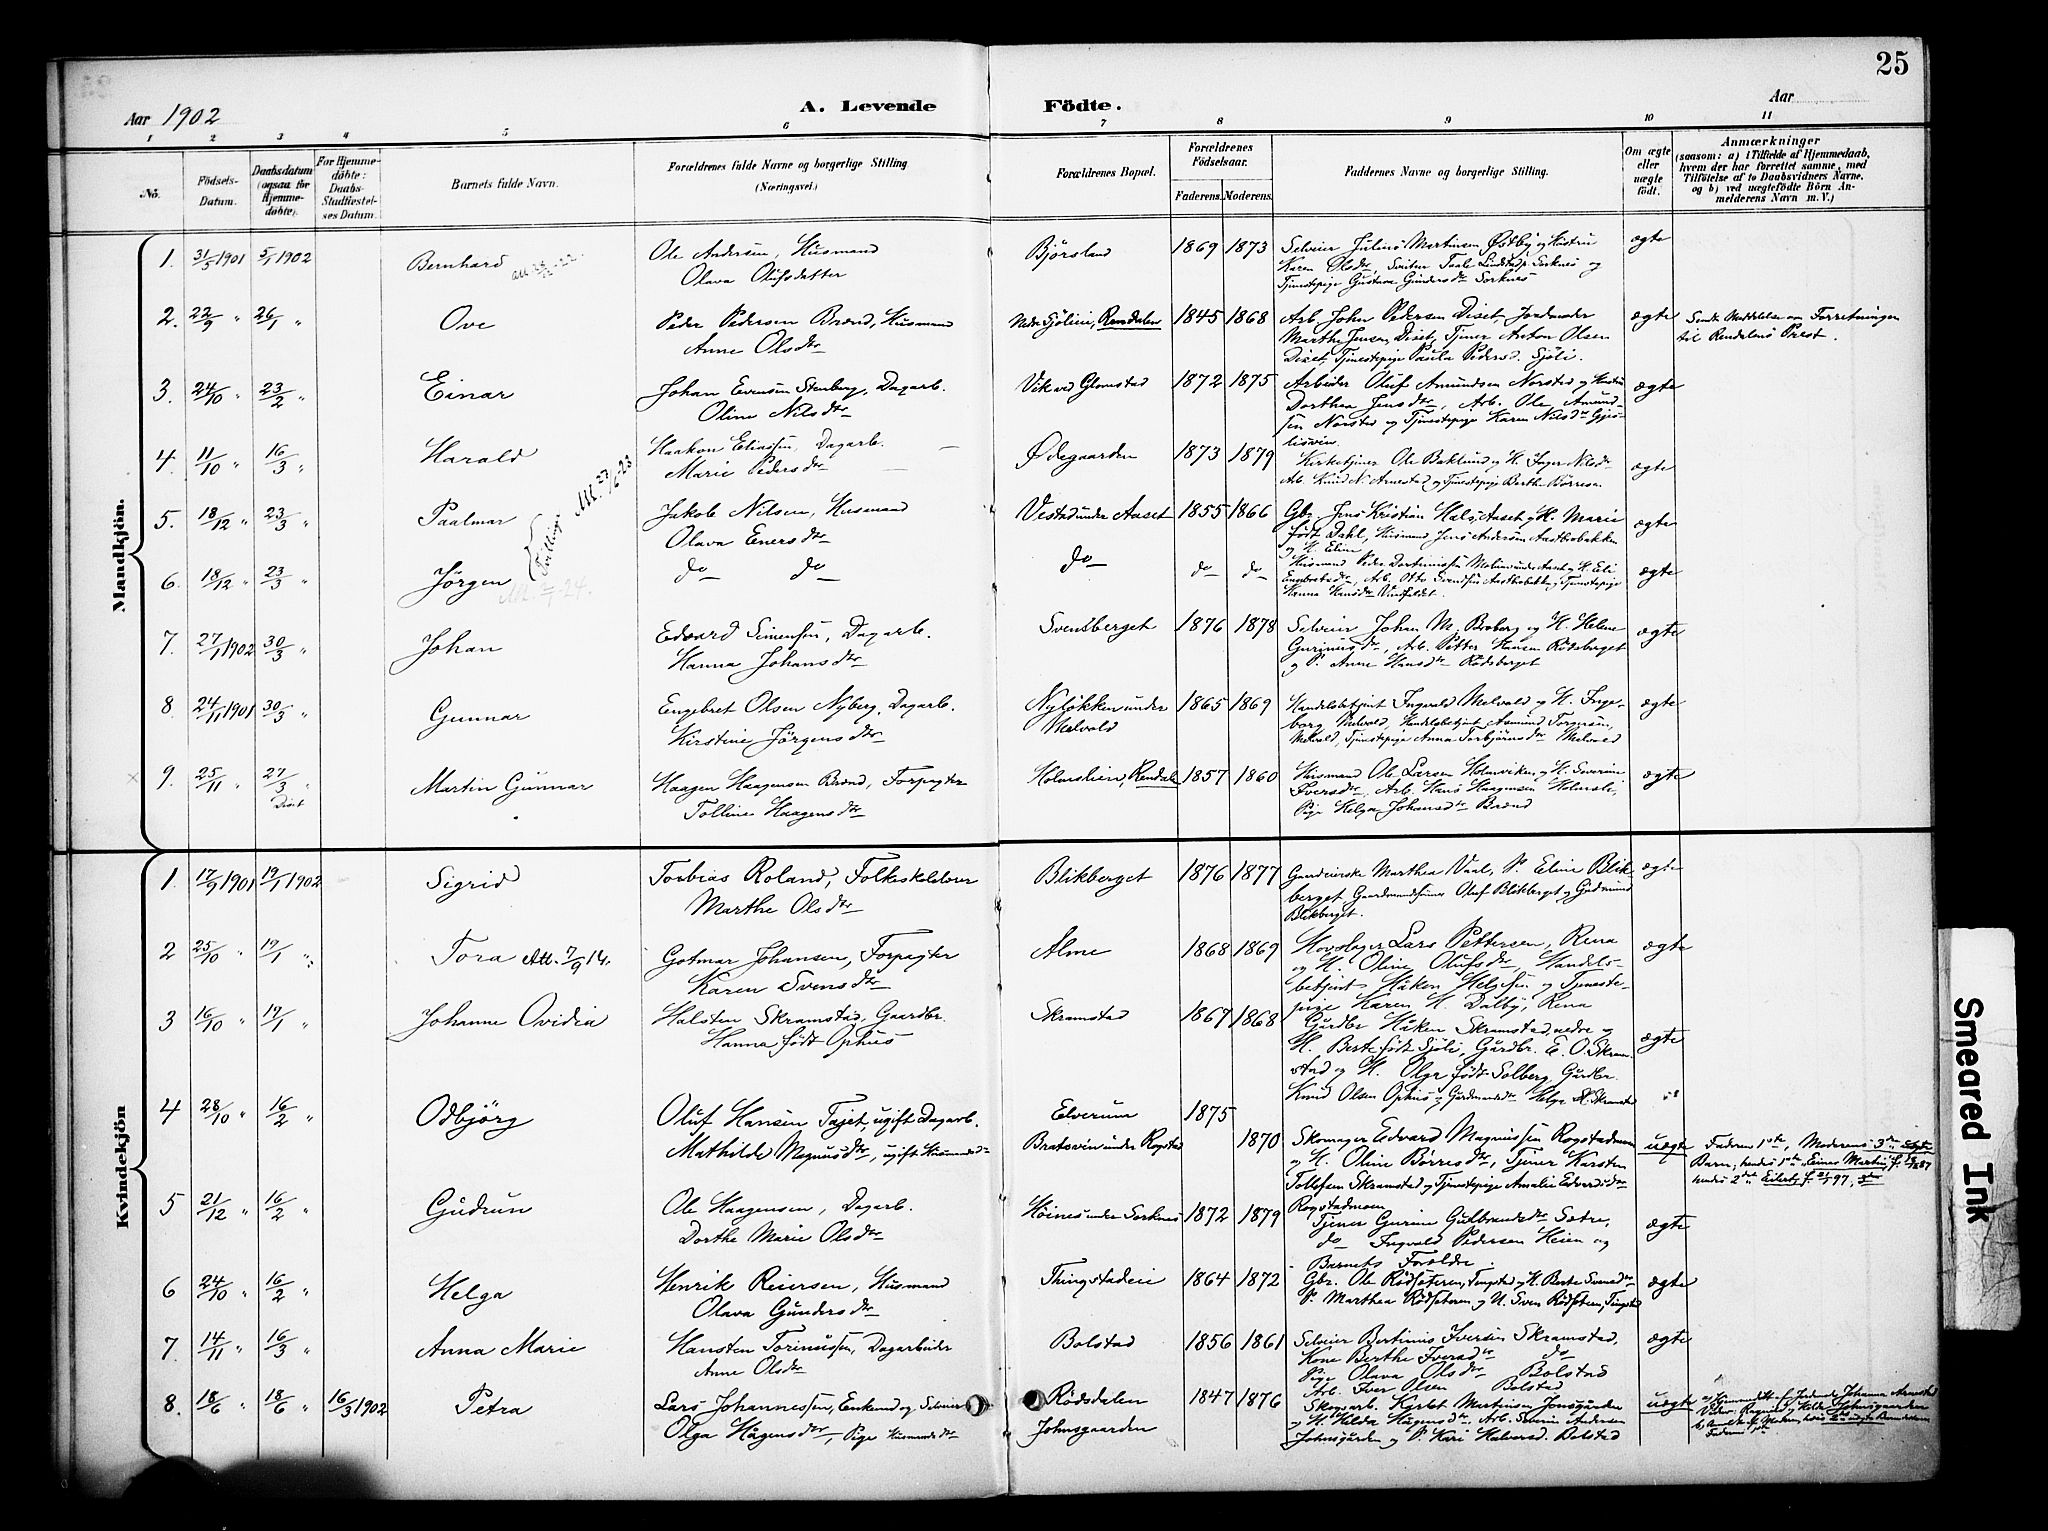 25
Aar 1902
A. Levende Födte.
Aar
1 2 3 4 5 6 7 8 9 10 11
No.
Födsels-
Datum.
Daabsdatum
(ogsaa for
Hjemme-
döbte).
For Hjemme-
döbte:
Daabs-
Stadfæstel-
ses Datum.
Barnets fulde Navn.
Forældrenes fulde Navne og borgerlige Stilling
(Næringsvei.)
Forældrenes Bopæl.
Forældrenes
Födselsaar.
Faderens. Moderens.
Faddernes Navne og borgerlige Stilling.
Om ægte
eller
uægte
födt.
Anmærkninger
(saasom: a) i Tilfælde af Hjemmedaab,
hvem der har forrettet samme, med
Tilföielse af to Daabsvidners Navne.
og b) ved uægtefödte Börn An-
melderens Navn m. V.)
Mandkjön.
1. 31/5 1901 5/1 1902 Bernhard
Ole Andersen, Husmand
Olava Olufsdatter
Bjørsland 1869 1873
Selveier Julius Martinsen Østby og Hustru
Karen Olsdtr,
Tjenestepige Gustava Gundersdtr Sorknes
ægte
2. 22/9 " 26/1 " Ove
Peder Pedersen Brænd, Husmand
Anne Olsdtr
Nedre Sjöliei, Rendalen 1845 1868
Arb. John Pedersen Diset, Jordmoder
Marthe Jensen Diset, Tjener Anton Olsen
Diset, Tjenestepige Paula Pedersd. Sjöli.
ægte
Sendt Meddelelse om Forretningen
til Rendalens Prest.
3. 24/10 " 23/2 " Einar
Johan Evensen Stenberg, Dagarb.
Oline Nilsdtr
Vik ved Glomstad 1872 1875
Arbeider Oluf Amundsen Norstad og Hustru
Dorthea Jensdtr, Arb. Ole Amund-
sen Norstad og Tjenestepige Karen Nilsdtr
ægte
4. 11/10 " 16/3 " Harald
Haakon Eliassen, Dagarb.
Marie Pedersdtr
Ødegaarden 1873 1879
Kirketjener Ole Baklund og H. Inger Nilsdtr
Arb. Knud N. Arnestad og Tjenestepige Berthe Börresen
ægte
5. 18/12 " 23/3 " Paalmar
Tvillinger
Jakob Nilsen, Husmand
Olava Enersdtr
Vestad under Aaset 1855 1866
Gbr. Jens Kristian Hals, Aaset og H. Marie
født Dahl, Husmand Jens Andersen Aastbrobakken
og H. Eline
ægte
6. 18/12 " 23/3 " Jørgen
do do
do do do
Husmand Peder
Hanna Hansdtr Vindfaldet.
ægte
7. 27/1 1902 30/3 " Johan
Edvard Simensen, Dagarb.
Hanna Johansdtr
Svensberget 1876 1878
Selveier Johan M. Broberg og H. Helene
Gurinusdtr, Arb. Petter Hansen Rödsberget
og P. Anne Hansdtr Rödsberget
ægte
8. 24/11 1901 30/3 " Gunnar
Engebret Olsen Nyberg, Dagarb.
Kirstine Jörgensdtr
Nyløkken under
Melvold 1865 1869
Handelsbetjent Ingvald Melvold og H. Inge-
borg Melvold, Handelsbetjent Amund Torgersen,
Melvold, Tjenestepige Anna Torbjörnsdtr Melvold
ægte
9. 25/11 " 27/3 " Martin Gunnar
Diset
Haagen Haagensen Brænd, Forpagter
Tolline Haagensdtr
Holmslien, Rendalen 1857 1860
Husmand Ole Larsen Holmviken og H. Severine
Iversdtr, Arb. Hans Haagensen Holmsli,
Pige Helga Johansdtr Brænd
ægte
Kvindekjön
1. 17/9 1901 19/1 1902 Sigrid
Tobias Roland, Folkeskolelærer
Marthe Olsdtr
Blikberget 1876 1877
Gaardeierske Marthea Vaal, P. Eline Blik-
berget Gaardmandssönner Oluf Blikberget og Gudmund
Blikberget.
ægte
2 25/10 " 19/1 " Tora Att. 7/9 14.
Gotmar Johansen, Forpagter
Karen Svensdtr
Alme 1868 1869
Hovslager Lars Pettersen, Rena
og H. Oline Olufsdtr, Handels-
betjent Håken Helgesen og Tjeneste-
pige Karen H. Dalby, Rena
ægte
3 16/10 " 19/1 " Johanne Ovidia
Halsten Skramstad, Gaardbr.
Hanna født Ophus
Skramstad 1867 1868
Gårdbr Håken Skramstad, nedre og
H. Berte født Sjöli, Gårdbr. E. O. Skram-
stad og H. Olga født Solberg, Gårdbr.
Knud Olsen Ophus og Gårdmandsdtr Helga H. Skramstad
ægte
4 28/10 " 16/2 " Odbjörg
Oluf Hansen Fajet, ugift Dagarb.
Mathilde Magnusdtr, ugift Husmandsdtr
Elverum 1875
Bratsvén under Rogstad 1870
Skomager Edvard Magnussen Rogstadmoen
og H. Oline Börresdtr, Tjener Karsten
Tollefsen Skramstad og Tjenestepige Amalie Edvardsdtr
Rogstadmoen
uægte
Faderens 1ste, Moderens 3die
Barn, hendes 1ste "Einar Martin",
hendes 2det "Eilert"
5 21/12 " 16/2 " Gudrun
Ole Haagensen, Dagarb.
Dorthe Marie Olsdtr
Höines under Sorknes 1872 1879
Tjener Gurine Gulbrandsdtr Sætre,
do Ingvald Pedersen Heien og
Barnets Forældre.
ægte
6 24/10 " 16/2 " Helga
Henrik Reiersen, Husmand
Olava Gundersdtr
Thingstadeie 1864 1872
Gbr. Ole Rödsæteren, Tingstad og H. Berte Svensdtr
P. Marthea Rödsæteren og U. Sven Rödsæteren, Tingstad
ægte
7. 14/11 " 16/3 " Anna Marie
Hansten Torinussen, Dagarbeider
Anne Olsdtr
Bolstad 1856 1861
Selveier Bertinus Iversen Skramstad,
Kone Berthe Iversdtr do
Pige Olava Olsdtr Bolstad
Arb. Iver Olsen Bolstad
ægte
8. 18/6 " 18/6 " 16/3 1902 Petra
Lars Johannessen, Enkemd og Selveier
Olga Hågensdtr, Pige Husmandsdtr
Rödsdalen
Johnsgaarden 1847 1876
Skogsarb. Kjeld Martinsen Jonsgården
og H. Hilda Hågensdtr, Arb. Severin Andersen
Johnsgården og P. Kari Halvorsd. Bolstad
uægte
Smeared Ink